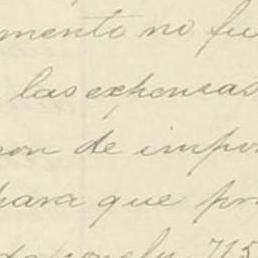 mento no fu
las expensas
on de impo
para que pr
715